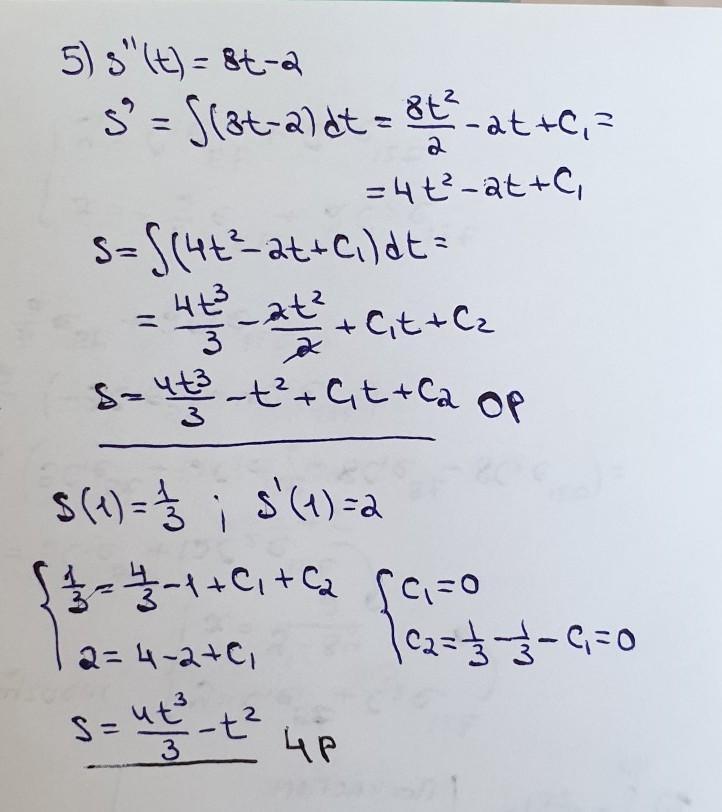 5) s''(t) = 8t-2
s' = ∫(8t-2)dt = 8t²/2 - 2t + C₁ =
= 4t² - 2t + C₁
s = ∫(4t² - 2t + C₁)dt =
= 4t³/3 - 2t²/2 + C₁t + C₂
s = 4t³/3 - t² + C₁t + C₂ OP
s(1) = 1/3 ; s'(1) = 2
{ 1/3 = 4/3 - 1 + C₁ + C₂ { C₁ = 0
2 = 4 - 2 + C₁ C₂ = 1/3 - 1/3 - C₁ = 0
s = 4t³/3 - t² ЧР